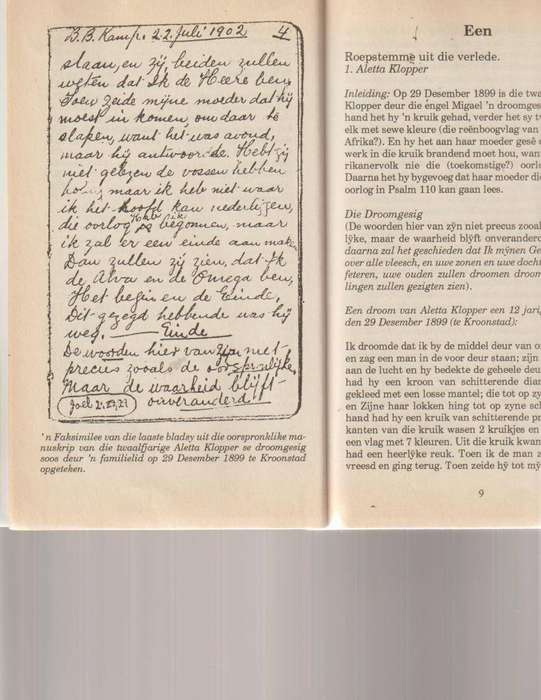 B.B. Kamp. 22. Juli 1902 4
slaan, en zij beiden zullen
weten dat Ik de Heere ben,
Toen zeide mijne moeder dat hij
moest in komen, om daar te
slapen, want het was avond,
maar hij antwoorde. Hebt zij
niet gelezen de vossen hebben
holen maar ik heb niet waar
ik het hoofd kan nederliggen,
die oorlog heb ik begonnen, maar
ik zal er een einde aan maken
Dan zullen zij zien, dat Ik
de Alva en de Omega ben,
Het begin en de Einde,
Dit gezegd hebbende was hij
weg. Einde
De woorden hier van zijn niet
precies zooals de oorspralijke
Maar de waarheid blijft
Joel 2. 27, 27 onveranderd
'n Faksimilee van die laaste bladsy uit die oorspronklike ma-
nuskrip van die twaalfjarige Aletta Klopper se droomgesig
soos deur 'n familielid op 29 Desember 1899 te Kroonstad
opgeteken.
Een
Roepstemme uit die verlede.
1. Aletta Klopper
Inleiding: Op 29 Desember 1899 is die twa
Klopper deur die éngel Migael 'n droomges
hand het hy 'n kruik gehad, verder het sy t
elk met sewe kleure (die reënboogvlag van
Afrika?). En hy het aan haar moeder gesê
werk in die kruik brandend moet hou, want
rikanervolk nie die (toekomstige?) oorl
Daarna het hy bygevoeg dat haar moeder di
oorlog in Psalm 110 kan gaan lees.
Die Droomgesig
(De woorden hier van zÿn niet precus zooal
lÿke, maar de waarheid blÿft onverandero
daarna zal het geschieden dat Ik mÿnen Ge
over alle vleesch, en uwe zonen en uwe docht
feteren, uwe ouden zullen droomen droom
lingen zullen gezigten zien).
Een droom van Aletta Klopper een 12 jarig
den 29 Desember 1899 (te Kroonstad):
Ik droomde dat ik by de middel deur van on
en zag een man in de voor deur staan; zijn
aan de lucht en hy bedekte de geheele deur
had hy een kroon van schitterende dian
gekleed met een losse mantel; die tot op zy
en Zijne haar lokken hing tot op zyne sch
hand had hy een kruik van schitterende pr
kanten van die kruik wasen 2 kruikjes en
een vlag met 7 kleuren. Uit die kruik kwan
had een heerlÿke reuk. Toen ik de man z
vreesd en ging terug. Toen zeide hÿ tot mÿ
9